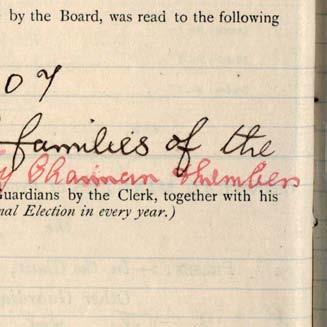 by the Board, was read to the following
07
families of the
Chairman & Members
Guardians by the Clerk, together with his
nal Election in every year.)